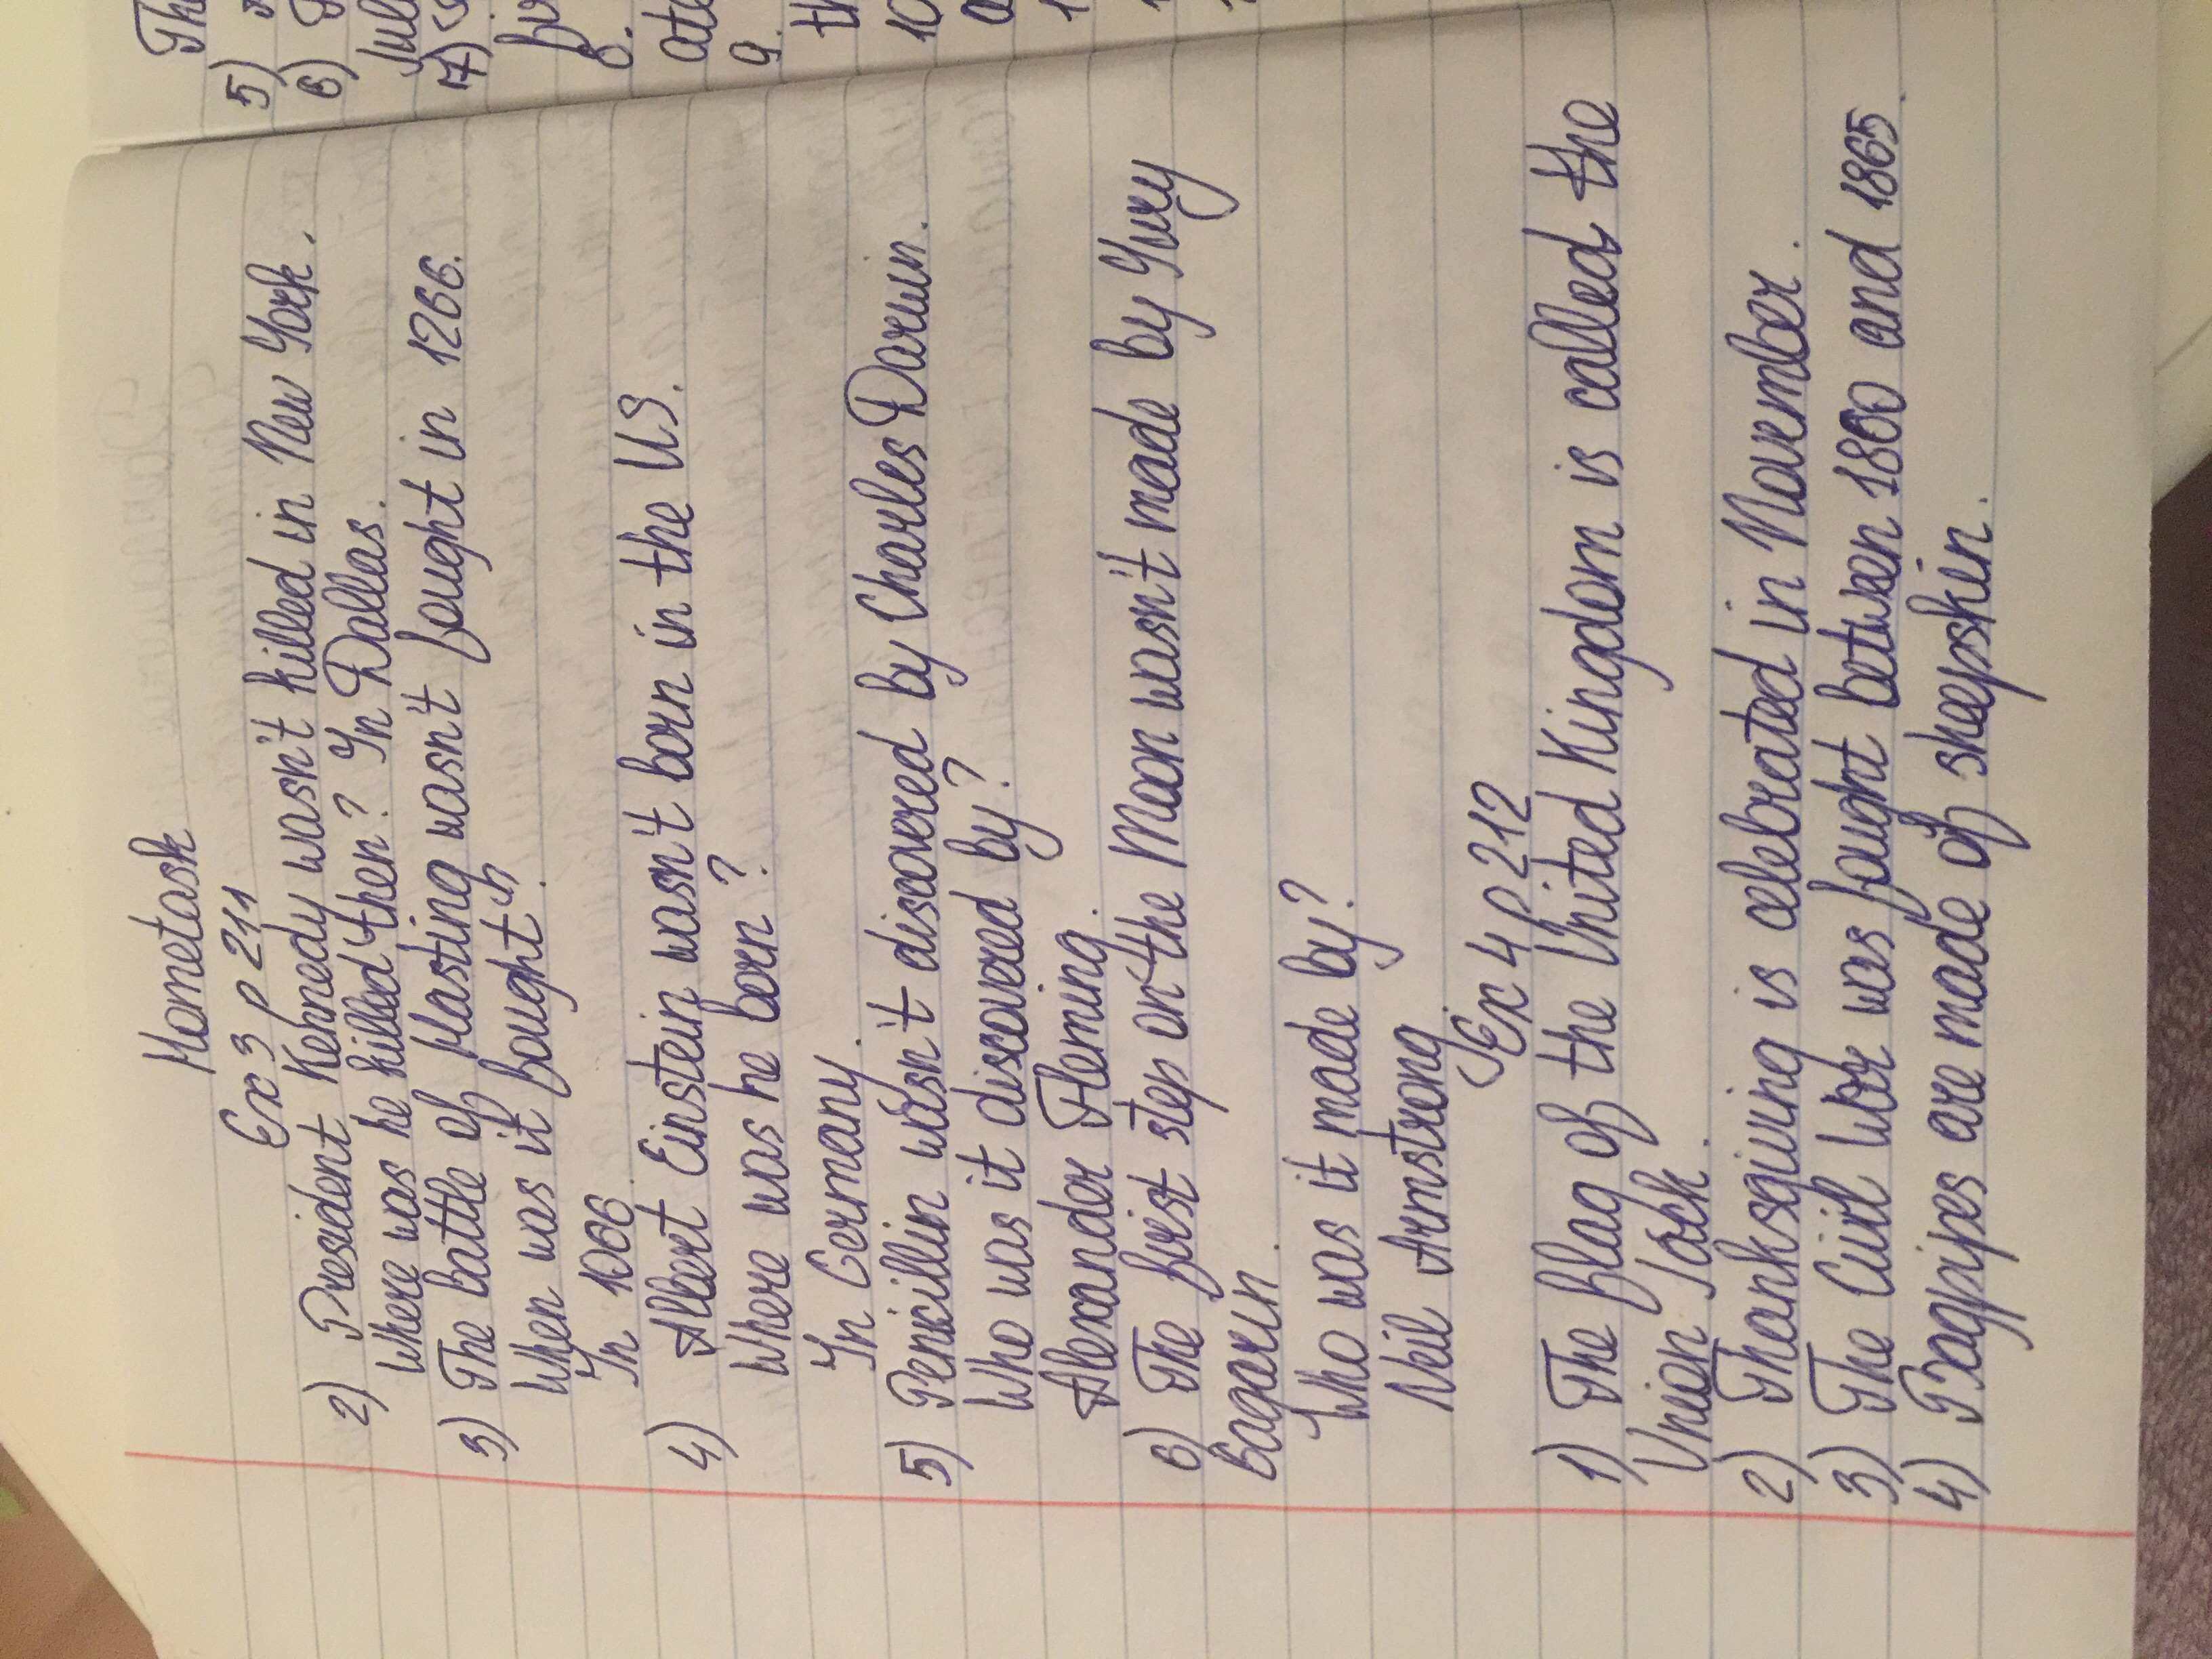 Hometask
Ex 3 p 211
2) President Kennedy wasn't killed in New York.
Where was he killed then? In Dallas.
3) The battle of Hasting wasn't fought in 1266.
When was it fought?
In 1066.
4) Albert Einstein wasn't born in the US.
Where was he born?
In Germany.
5) Penicillin wasn't discovered by Charles Darwin.
Who was it discovered by?
Alexander Fleming.
6) The first step on the Moon wasn't made by Yury
Gagarin.
Who was it made by?
Neil Armstrong.
Ex 4 p 212
1) The flag of the United Kingdom is called the
Union Jack.
2) Thanksgiving is celebrated in November.
3) The Civil War was fought between 1800 and 1865.
4) Bagpipes are made of sheepskin.
The
5)
6)
7)
8.
9.
10